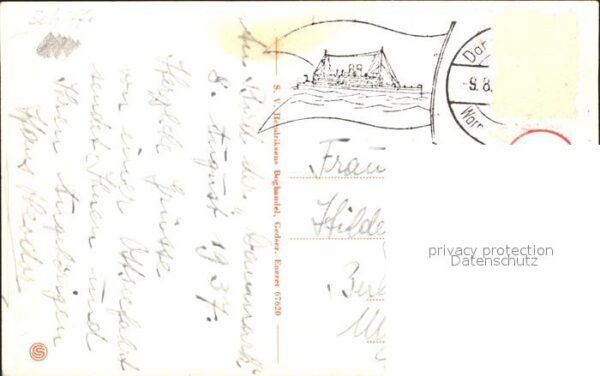 Schiffe
An Bord der "Danmark"
8. August 1937.
Herzliche Grüsse
von einer Ostseefahrt
sendet Ihnen und
Ihren Angehörigen
Hans
S. V. Hendriksens Boghandel, Gedser. Eneret 67620
Dan
-9.8.
Warn
Frau
Hilde
Berl
privacy protection
Datenschutz